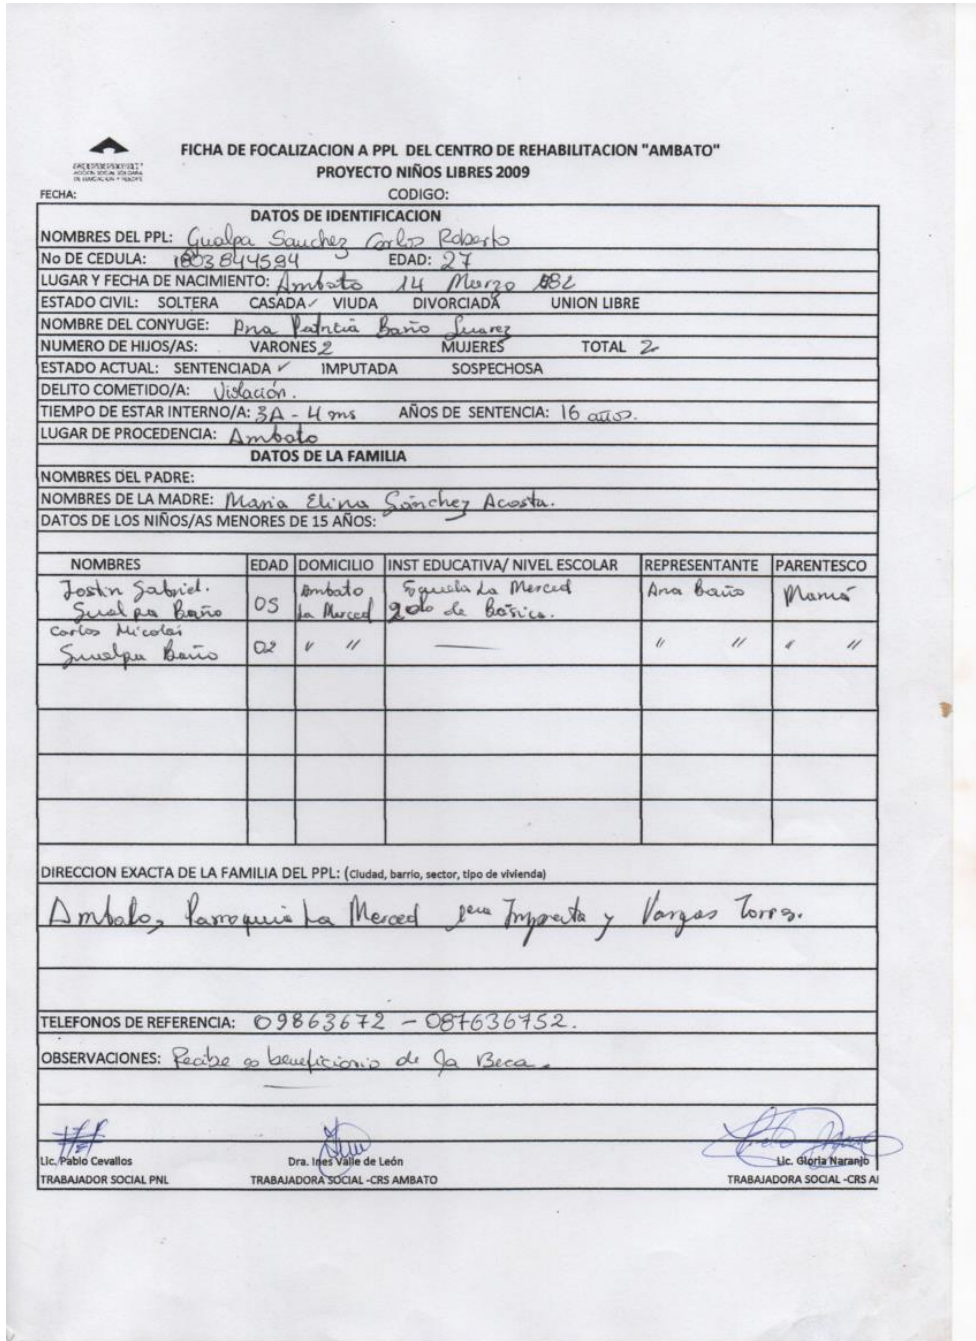 FICHA DE FOCALIZACION A PPL DEL CENTRO DE REHABILITACION "AMBATO"
PROYECTO NIÑOS LIBRES 2009
FECHA: CODIGO:
DATOS DE IDENTIFICACION
NOMBRES DEL PPL: Gualpa Sanchez Carlos Roberto
No DE CEDULA: 1803844594 EDAD: 27
LUGAR Y FECHA DE NACIMIENTO: Ambato 14 Marzo 82
ESTADO CIVIL: SOLTERA CASADA ✓ VIUDA DIVORCIADA UNION LIBRE
NOMBRE DEL CONYUGE: Ana Patricia Baño Suarez
NUMERO DE HIJOS/AS: VARONES 2 MUJERES TOTAL 2
ESTADO ACTUAL: SENTENCIADA ✓ IMPUTADA SOSPECHOSA
DELITO COMETIDO/A: Violación.
TIEMPO DE ESTAR INTERNO/A: 3A - 4 ms AÑOS DE SENTENCIA: 16 años.
LUGAR DE PROCEDENCIA: Ambato
DATOS DE LA FAMILIA
NOMBRES DEL PADRE:
NOMBRES DE LA MADRE: Maria Elina Sánchez Acosta.
DATOS DE LOS NIÑOS/AS MENORES DE 15 AÑOS:
NOMBRES EDAD DOMICILIO INST EDUCATIVA/ NIVEL ESCOLAR REPRESENTANTE PARENTESCO
Jostin Gabriel. Ambato Escuela La Merced Ana Baño Mamá
Gualpa Baño 05 La Merced 2do de Básica.
Carlos Nicolas
Gualpa Baño 02 " " — " " " "
DIRECCION EXACTA DE LA FAMILIA DEL PPL: (Ciudad, barrio, sector, tipo de vivienda)
Ambato, Parroquia La Merced y Vargas Torres.
TELEFONOS DE REFERENCIA: 09863672 - 087636752.
OBSERVACIONES: Recibe es beneficiario de la Beca.
Lic. Pablo Cevallos Dra. Ines Valle de León Lic. Gloria Naranjo
TRABAJADOR SOCIAL PNL TRABAJADORA SOCIAL -CRS AMBATO TRABAJADORA SOCIAL -CRS A